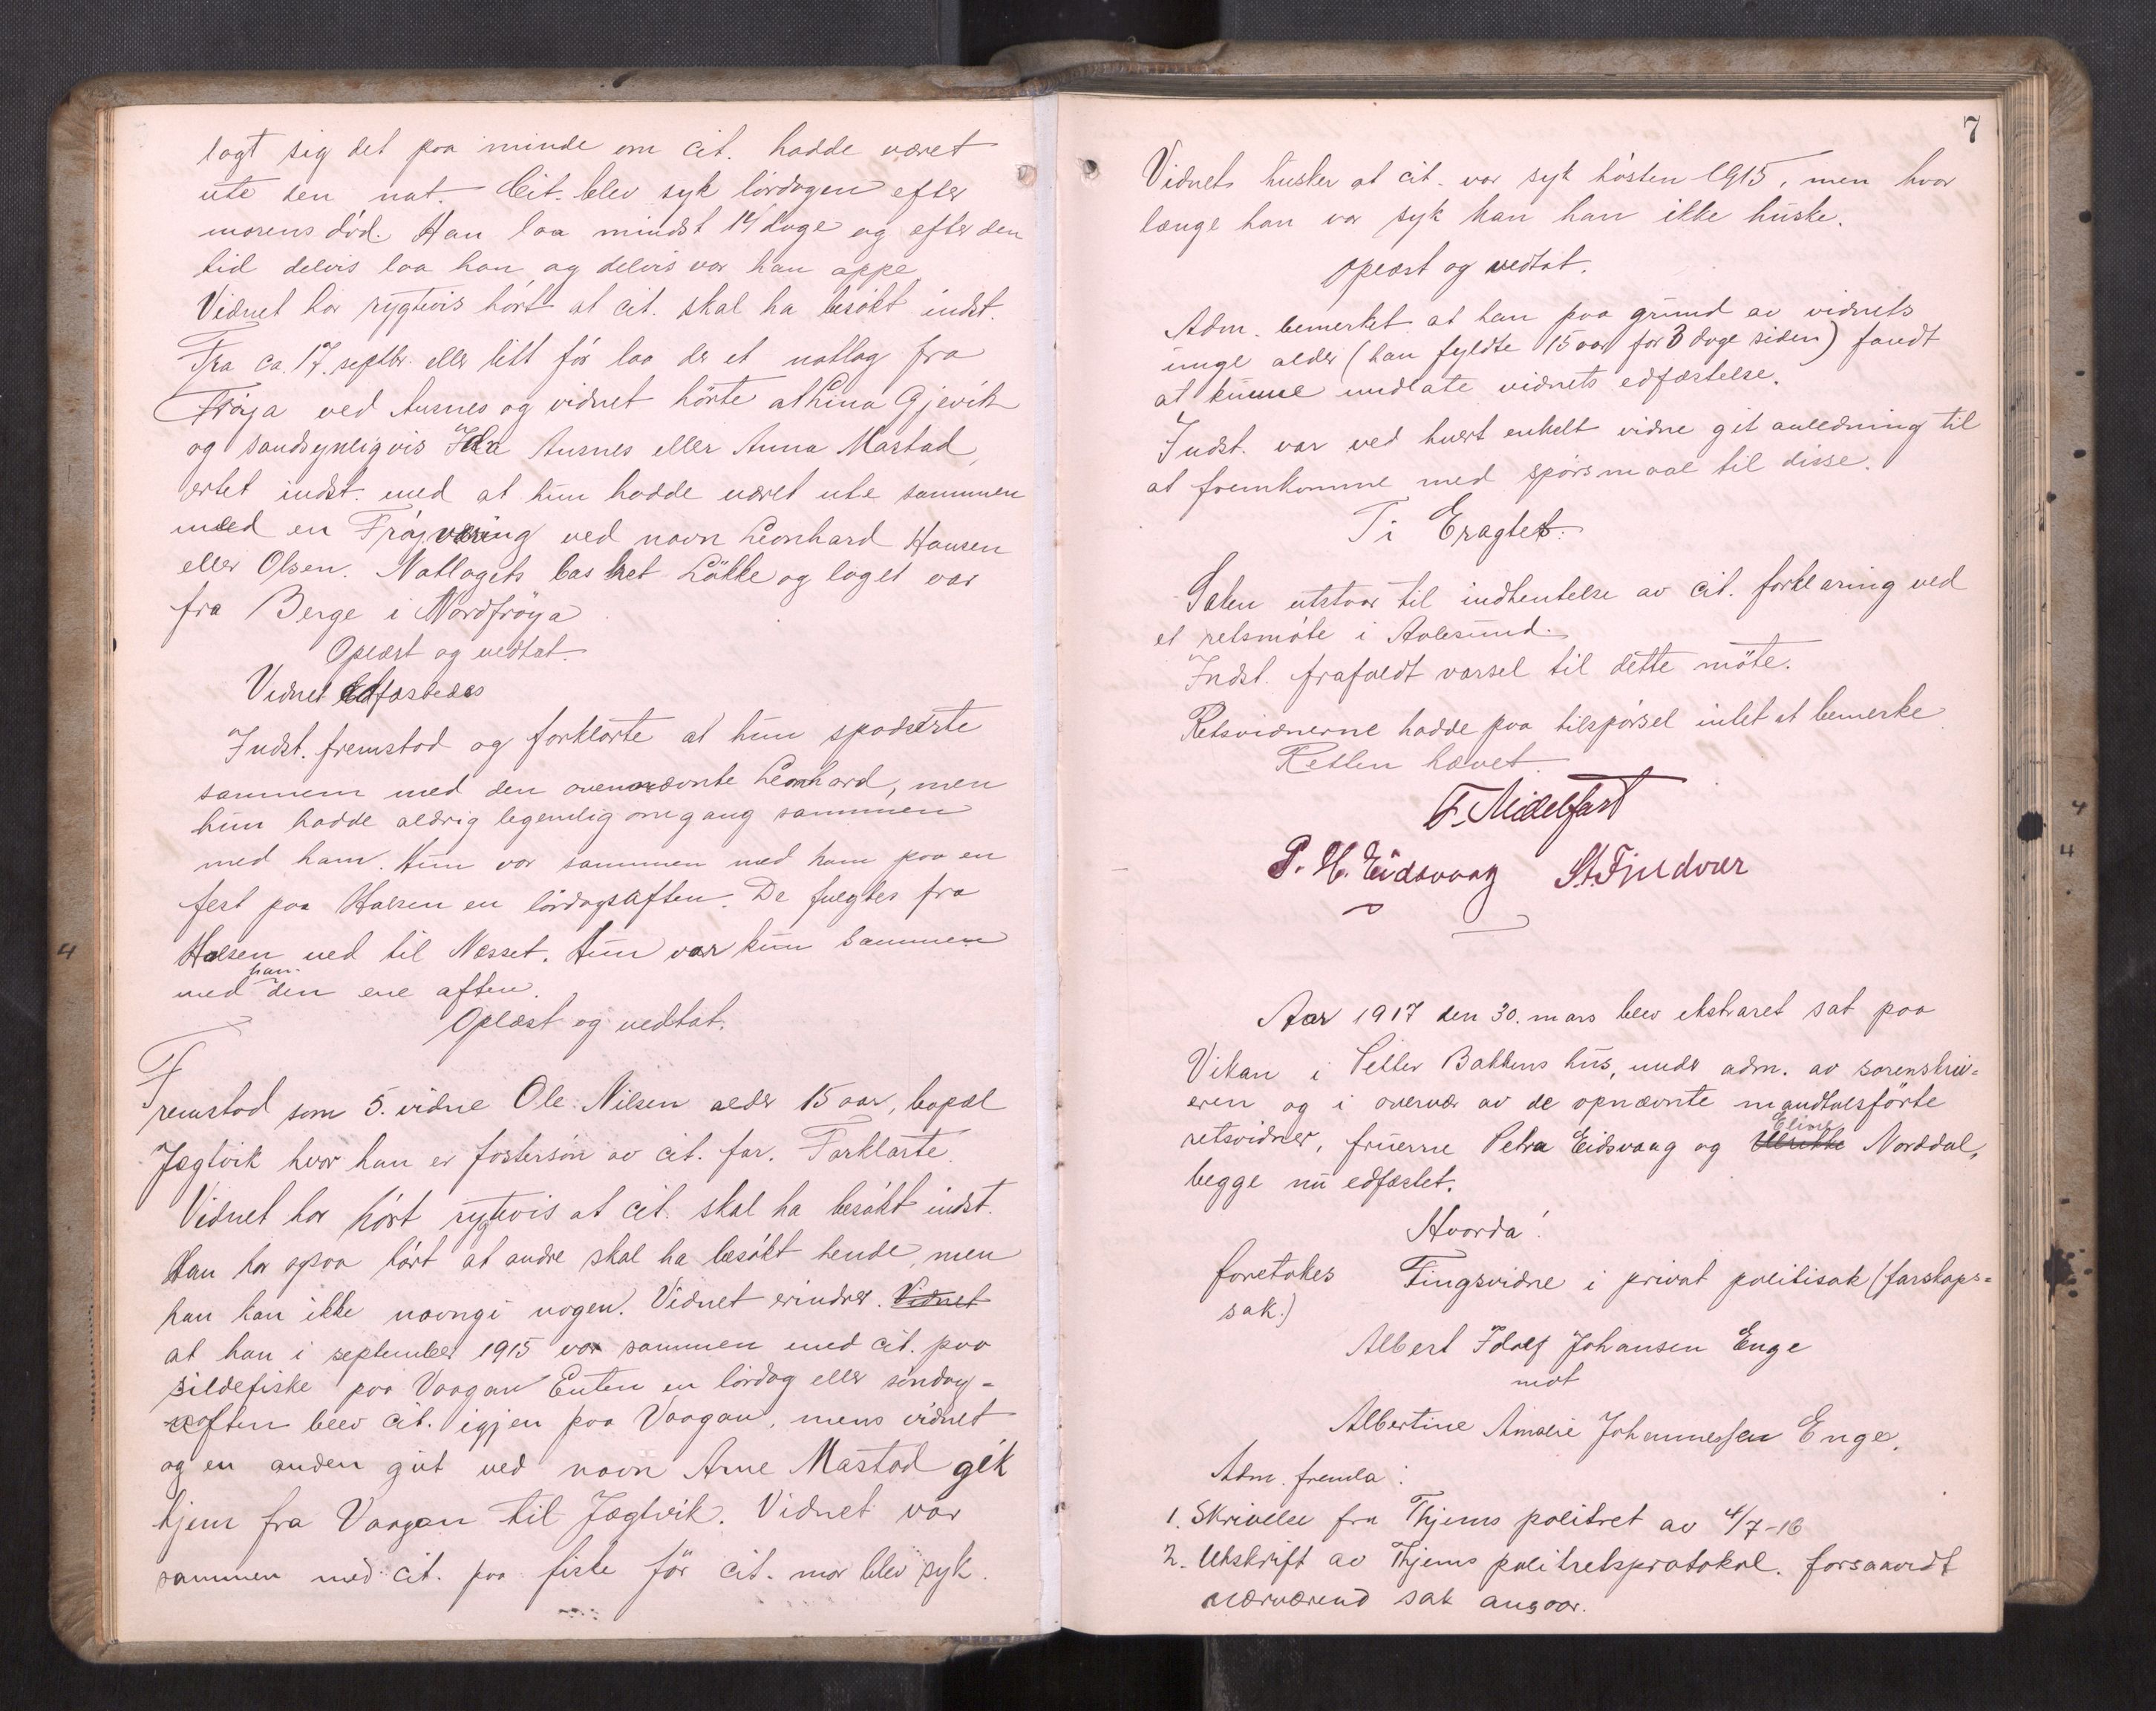 lagt sig det paa minde om cit. hadde været
ute den nat. Cit. blev syk lördagen efter
morens död. Han laa mindst 14 dage og efter den
tid delvis laa han og delvis var han oppe
Vidnet har rygtevis hört at cit. skal ha besökt indst.
Fra ca. 17. septbr. eller litt för laa der et notlag fra
Fröya ved Ausnes og vidnet hörte at Lina Gjevik
og sandsynligvis Ida Ausnes eller Anna Mastad,
ertet indst. med at hun hadde været ute sammen
med en Fröyværing ved navn Leonhard Hansen
eller Olsen. Notlagets bas het Lökke og laget var
fra Berge i Nordfröya
Oplæst og vedtat.
Vidnet edfæstedes
Indst. fremstod og forklarte at hun spaserte
sammen med den ovennævnte Leonhard, men
hun hadde aldrig legemlig omgang sammen
med ham. Hun var sammen med ham paa en
fest paa Halsen en lördagsaften. De fulgtes fra
Halsen ned til Nesset. Hun var kun sammen
ham
med den ene aften.
Oplæst og vedtat.
Fremstod som 5. vidne Ole Nilsen alder 15 aar, bopæl
Jægtvik hvor han er fostersön av cit. far. Forklarte
Vidnet har hört rygtevis at cit. skal ha besökt indst.
Han har ogsaa hört at andre skal ha besökt hende, men
han kan ikke navngi nogen. Vidnet erindrer. Vidnet
at han i september 1915 var sammen med cit. paa
sildefiske paa Vaagan Enten en lördag eller söndag-
aften blev cit. igjen paa Vaagan, mens vidnet
og en anden gut ved navn Arne Mastad gik
hjem fra Vaagan til Jægtvik. Vidnet var
sammen med cit. paa fiske för cit. mor blev syk.
7
Vidnet husker at cit. var syk hösten 1915, men hvor
længe han var syk kan han ikke huske.
Oplæst og vedtat.
Adm. bemerket at han paa grund av vidnets
unge alder (han fyldte 15 aar for 3 dage siden) fandt
at kunne undlate vidnets edfæstelse.
Indst. var ved hvert enkelt vidne git anledning til
at fremkomme med spörsmaal til disse.
Ti Eragtet:
Saken utstaar til indhentelse av cit. forklaring ved
et retsmöte i Aalesund.
Indst. frafaldt varsel til dette möte.
Retsvidnerne hadde paa tilspörsel intet at bemerke
Retten hævet
F. Midelfart
P. H. Eidsvaag St. Fjeldvær
Aar 1917 den 30. mars blev ekstraret sat paa
Vikan i Petter Bakkens hus, under adm. av sorenskriv-
eren og i overvær av de opnævnte mandtalsförte
Eline
retsvidner, fruerne Petra Eidsvaag og Ulrikke Norddal,
begge nu edfæstet.
Hvorda!
foretakes Tingsvidne i privat politisak (farskaps-
sak.)
Albert Idolf Johansen Enge
mot
Albertine Amalie Johannessen Enge.
Adm. fremla:
1. Skrivelse fra Thjems politret av 4/7-16
2. Utskrift av Thjems politretsprotokol. forsaavidt
nærværend sak angaar.